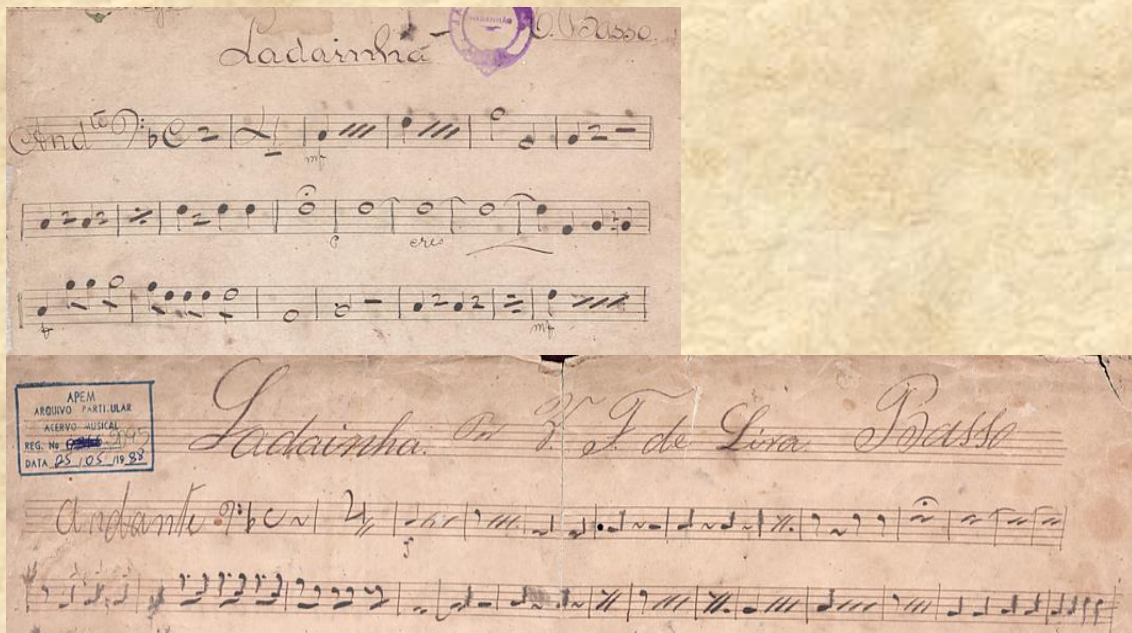 MARANHÃO
O. Basso.
Ladainha
Andte
mf
C eres
f
mf
APEM
ARQUIVO PARTICULAR
ACERVO MUSICAL
REG. No 2095
DATA 05 / 05 / 19 88
Ladainha. Por V. F. de Lira Basso
Andante
f